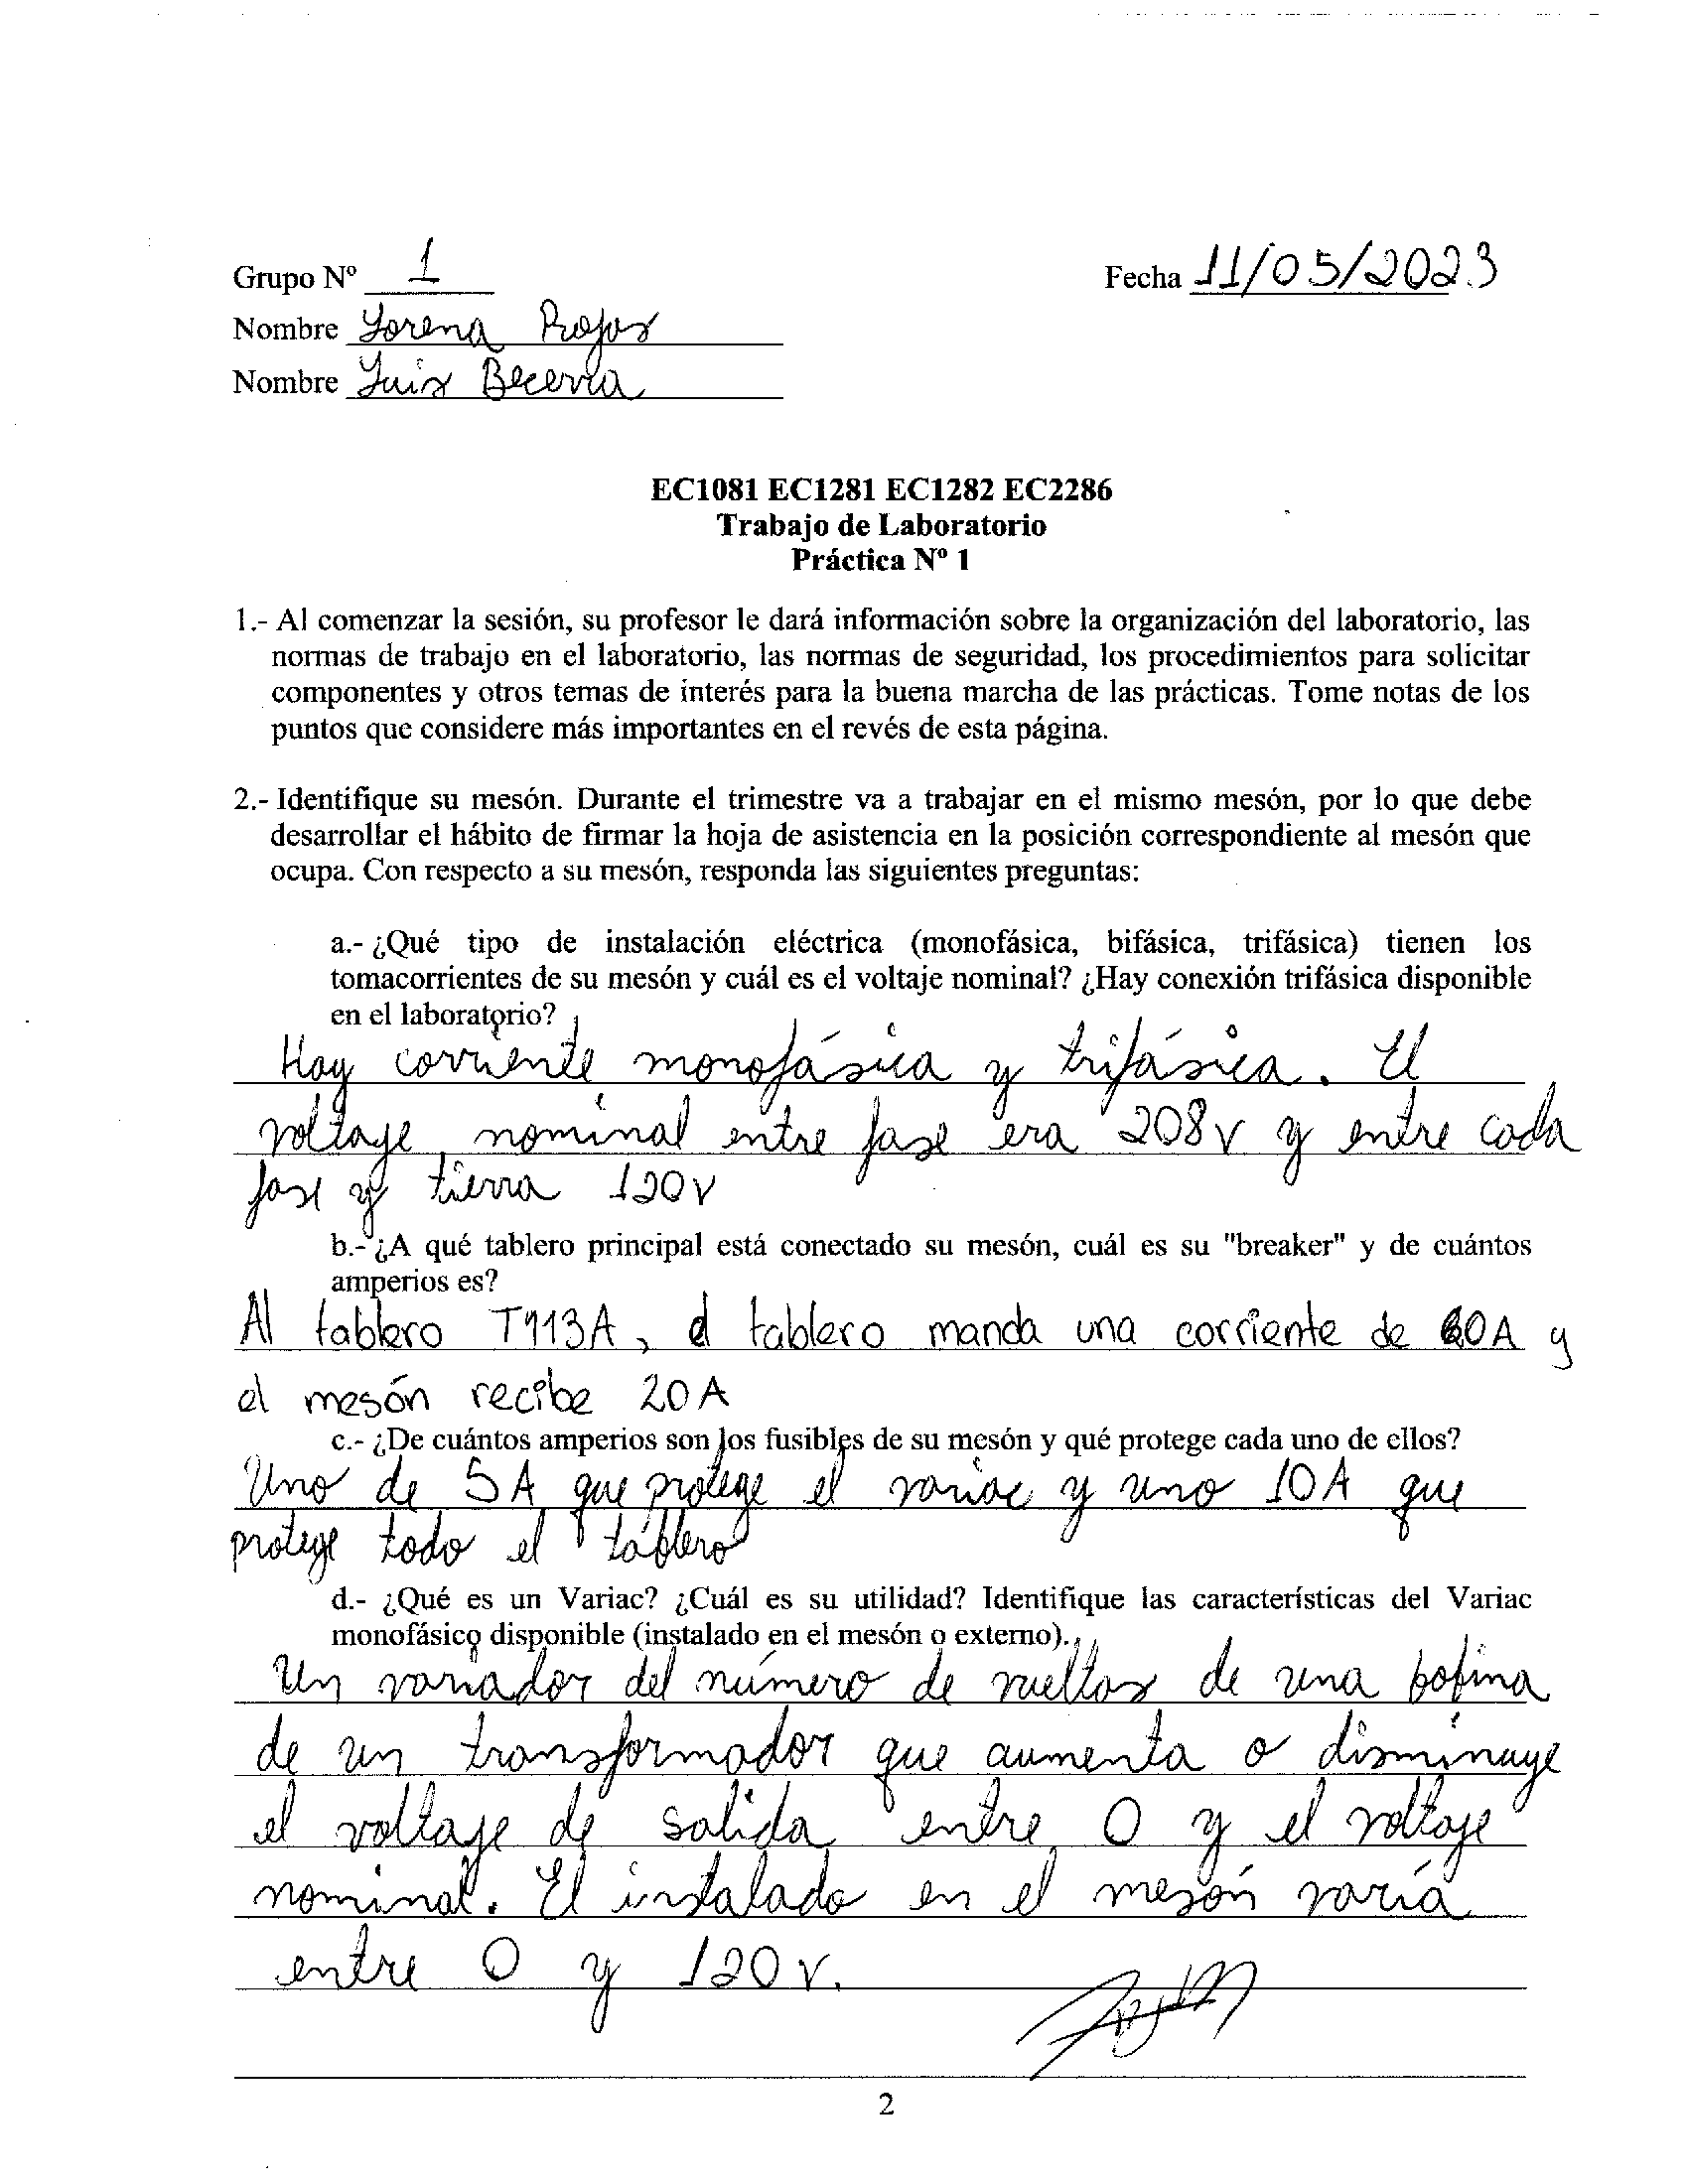 Grupo Nº 1
Fecha 11/05/2023
Nombre Lorena Rojas
Nombre Luis Becerra
EC1081 EC1281 EC1282 EC2286
Trabajo de Laboratorio
Práctica Nº 1
1.- Al comenzar la sesión, su profesor le dará información sobre la organización del laboratorio, las
normas de trabajo en el laboratorio, las normas de seguridad, los procedimientos para solicitar
componentes y otros temas de interés para la buena marcha de las prácticas. Tome notas de los
puntos que considere más importantes en el revés de esta página.
2.- Identifique su mesón. Durante el trimestre va a trabajar en el mismo mesón, por lo que debe
desarrollar el hábito de firmar la hoja de asistencia en la posición correspondiente al mesón que
ocupa. Con respecto a su mesón, responda las siguientes preguntas:
a.- ¿Qué tipo de instalación eléctrica (monofásica, bifásica, trifásica) tienen los
tomacorrientes de su mesón y cuál es el voltaje nominal? ¿Hay conexión trifásica disponible
en el laboratorio?
Hay corriente monofásica y trifásica. El
voltaje nominal entre fase era 208 v y entre cada
fase y tierra 120 v
b.- ¿A qué tablero principal está conectado su mesón, cuál es su "breaker" y de cuántos
amperios es?
Al tablero T113A, el tablero manda una corriente de 60A y
el mesón recibe 20 A
c.- ¿De cuántos amperios son los fusibles de su mesón y qué protege cada uno de ellos?
Uno de 5 A que protege el variac y uno 10 A que
protege todo el tablero
d.- ¿Qué es un Variac? ¿Cuál es su utilidad? Identifique las características del Variac
monofásico disponible (instalado en el mesón o externo).
Un variador del número de vueltas de una bobina
de un transformador que aumenta o disminuye
el voltaje de salida entre 0 y el voltaje
nominal. El instalado en el mesón varía
entre 0 y 120 v.
2